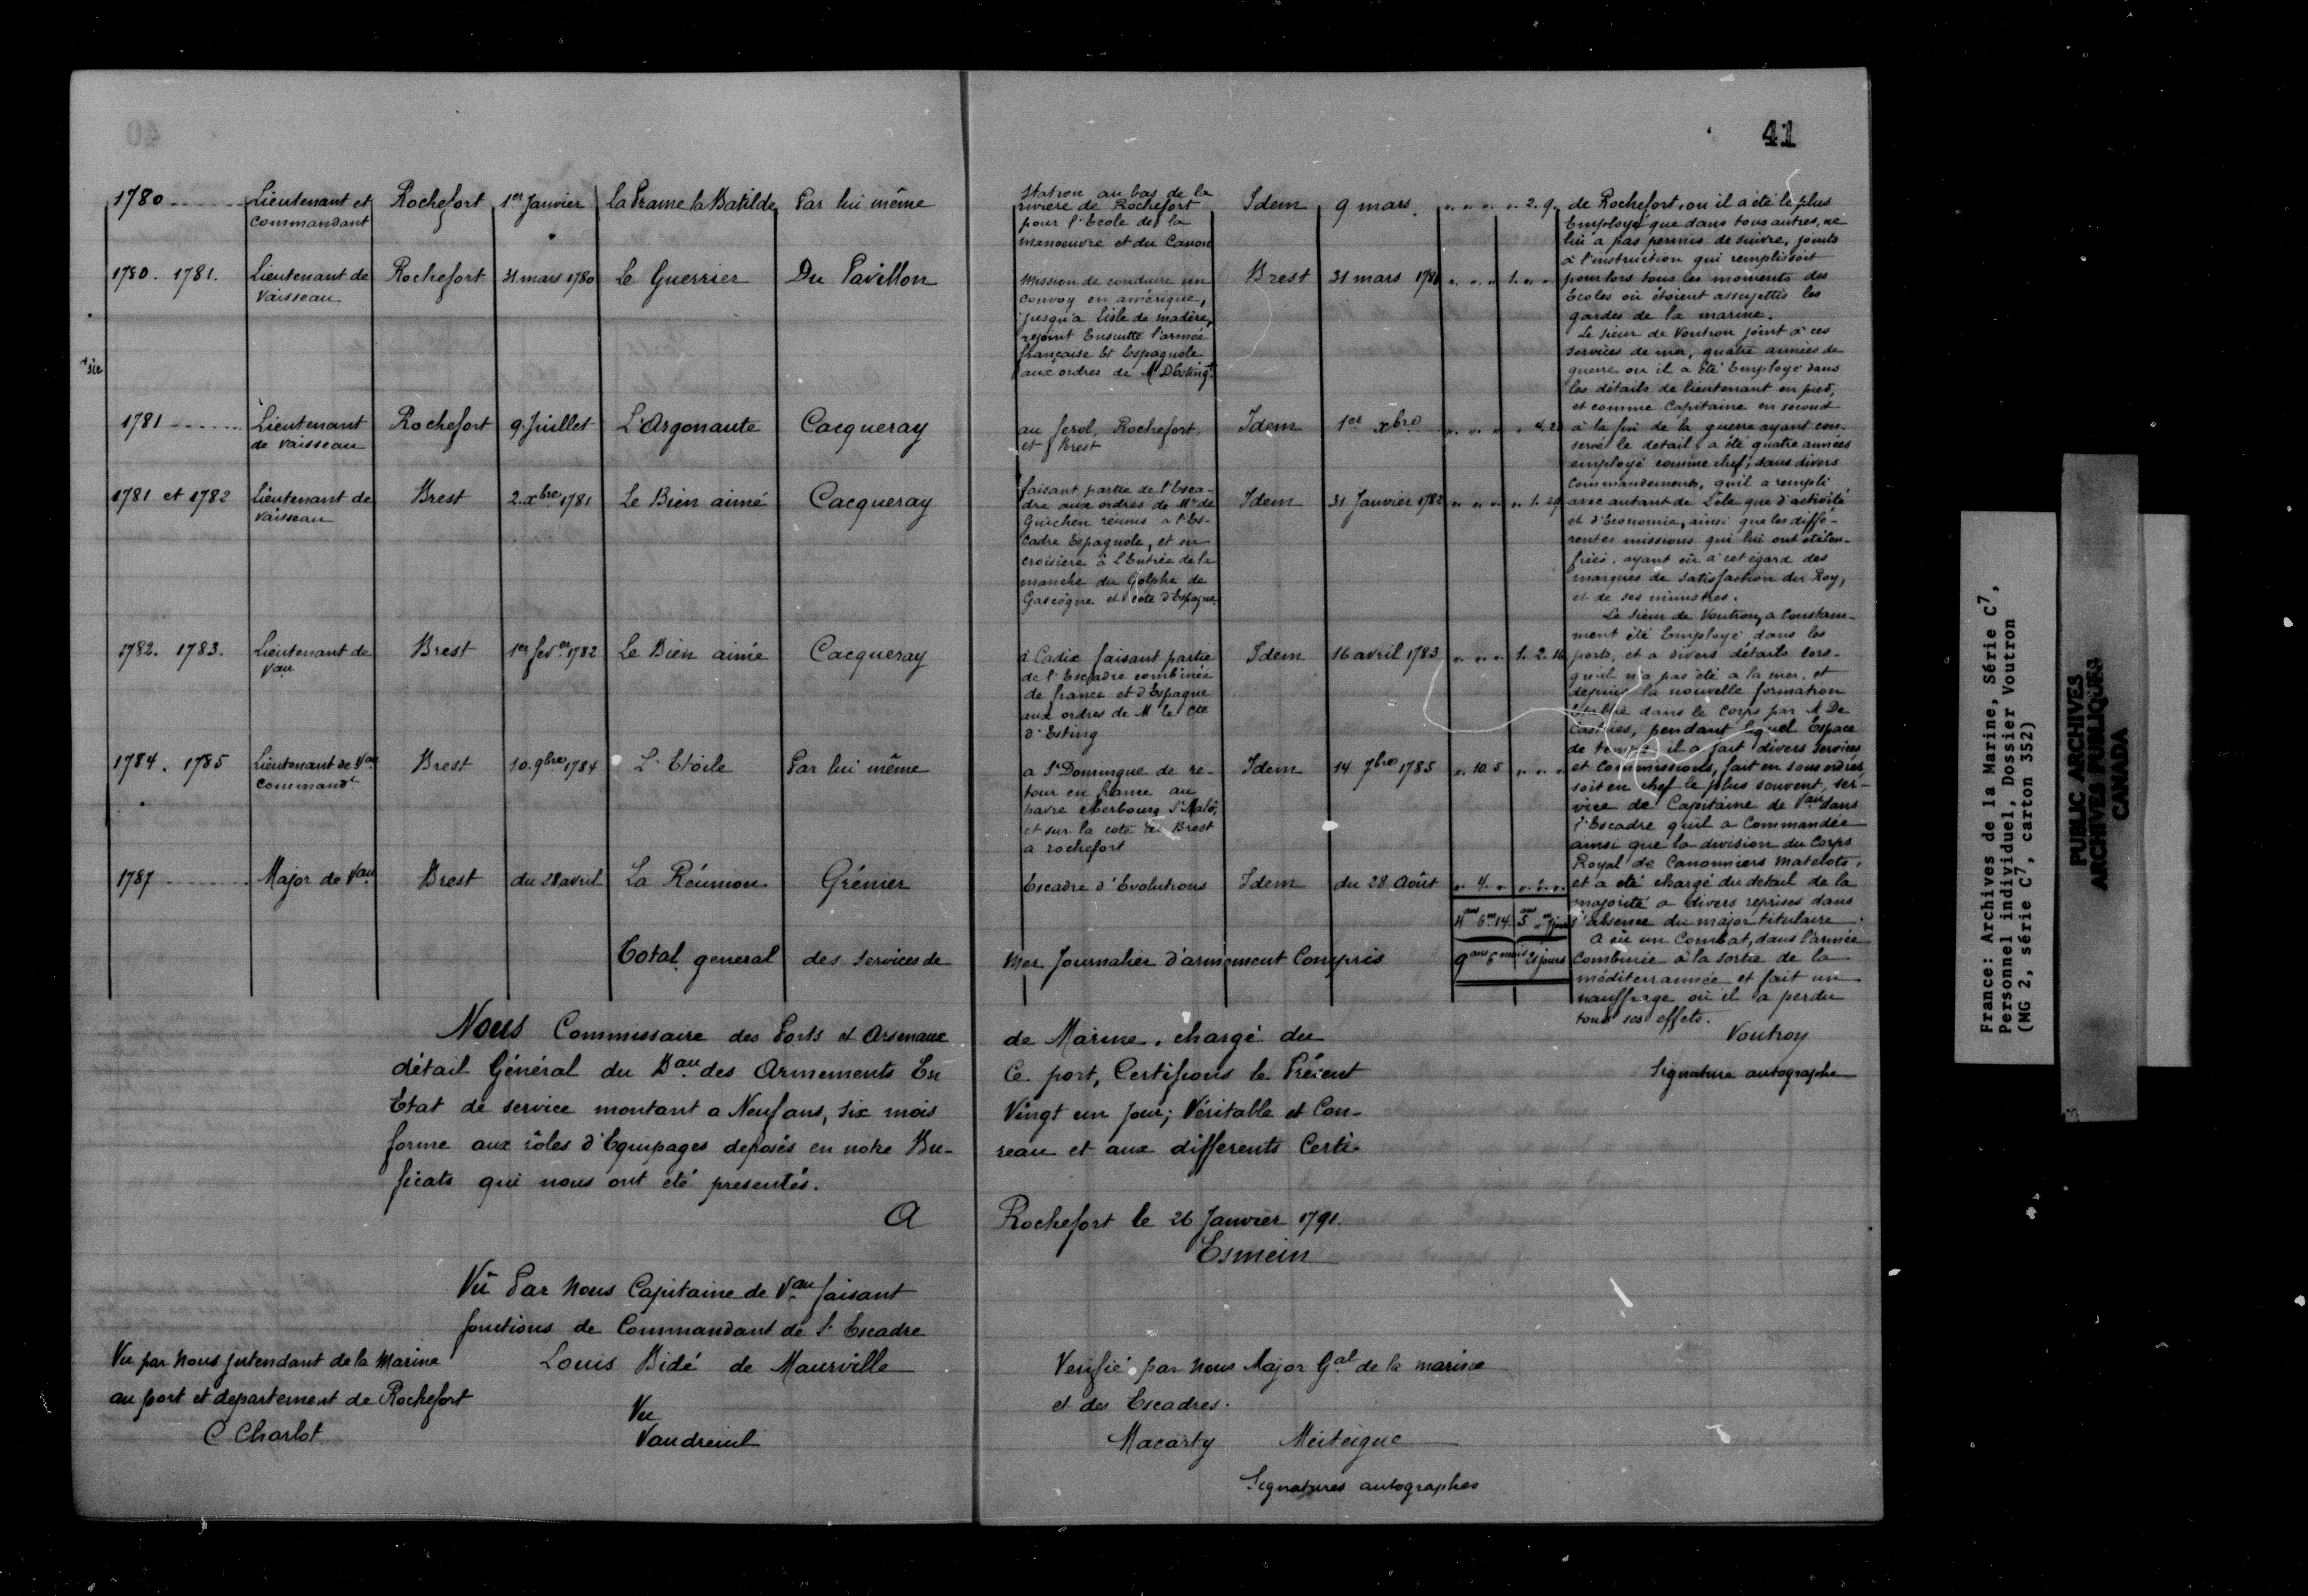 40
41
1780 Lieutenant et Commandant Rochefort 1er Janvier La Prame la Batilde Par lui même
1780. 1781. Lieutenant de Vaisseau Rochefort 31 mars 1780 Le Guerrier Du Pavillon
sic
1781 Lieutenant de vaisseau Rochefort 9 Juillet L'Argonaute Cacqueray
1781 et 1782 Lieutenant de vaisseau Brest 2. xbre 1781 Le Bien aimé Cacqueray
1782. 1783. Lieutenant de Vau Brest 1er fevrer 1782 Le Bien aimé Cacqueray
1784. 1785 Lieutenant de Vau Commandt Brest 10. 9bre 1784 L'Etoile Par lui même
1787 Major de Vau Brest du 28 avril La Réunion Grénier
Station au bas de la
riviere de Rochefort
pour l'Ecole de la
manoeuvre et du Canon
Idem 9 mars. " " " " 2. 9.
Mission de conduire un
Convoy en amérique,
jusqu'a l'isle de madère,
rejoint Ensuitte l'armée
française Et Espagnole
aux ordres de Mr D'Esting.
Brest 31 mars 1781 " " " 1. " "
au ferol, Rochefort
et Brest
Idem 1er xbre
faisant partie de l'Esca-
dre aux ordres de Mr de
Guichen réunis a l'Es-
Cadre Espagnole, et en
croisière à L'Entrée de la
manche du Golphe de
Gascogne et cote d'Espagne
Idem 31 Janvier 1782 " " " " 1. 29
à Cadix faisant partie
de l'Escadre combinée
de france et d'Espagne
aux ordres de M le Cte
d'Esting
Idem 16 avril 1783 " " " 1. 2. 16
a St Domingue de re-
tour en france au
havre cherbourg St Malô,
et sur la cote de Brest
a rochefort
Idem 14 7bre 1785 " 10 5 " " "
Escadre d'Evolutions Idem du 28 Août " 4. " " " "
4 ans 6 m 14. 5 ans " m 7 jours
Total general des services de mer Journalier d'armement Compris 9 ans 6 mois 21 jours
de Rochefort, ou il a été le plus
Employé que dans tous autres, ne
lui a pas permis de suivre, joints
à l'instruction qui remplissoit
pour lors tous les moments des
Ecoles où étoient assujettis les
gardes de la marine.
Le sieur de Voutron joint à ces
services de mer, quatre années de
guerre ou il a été Employé dans
les détails de lieutenant en pied,
et comme Capitaine en second
à la fin de la guerre ayant con-
servé le detail, a été quatre années
employé comme chef, dans divers
Commandements, qu'il a rempli
avec autant de Zèle que d'activité,
et d'Economie, ainsi que les diffé-
rentes missions qui lui ont été con-
fiées. ayant eû à cet égard des
marques de satisfaction du Roy,
et de ses ministres.
Le Sieur de Voutron, a Constam-
ment été Employé, dans les
ports, et a divers détails lors-
qu'il n'a pas été a la mer. et
depuis la nouvelle formation
Etablie dans le Corps par M De
Castries, pendant lequel Espace
de temps il a fait divers services
et Commissions, fait en sous ordres,
soit en chef le plus souvent, ser-
vice de Capitaine de Vau dans
l'Escadre qu'il a Commandée
ainsi que la division du Corps
Royal de Canonniers Matelots,
et a été chargé du detail de la
majorité a divers reprises dans
l'absence du major titulaire.
A eû un Combat, dans l'armée
Combinée à la sortie de la
méditerrannée et fait un
nauffrage où il a perdu
tous ses effets.
Voutroy
Signature autographe
Nous Commissaire des Ports et Arsenaux de Marine, chargé du
détail Général du Bau des Armements En Ce port, Certifions le Présent
Etat de service montant a Neuf ans, Six mois Vingt un Jour; Véritable et Con-
forme aux rôles d'Equipages deposés en notre Bu- reau et aux differents Certi-
ficats qui nous ont été presentés.
A Rochefort le 26 Janvier 1791.
Esmein
Vû Par Nous Capitaine de Vau faisant
fonctions de Commandant de l'Escadre
Louis Bidé de Maurville
Vu par Nous Intendant de la Marine
au port et departement de Rochefort
C Charlot
Vu
Vaudreuil
Verifié par Nous Major Gal de la marine
et des Escadres.
Macarty Meiteigue
Signatures autographes
France: Archives de la Marine, Série C7,
Personnel individuel, Dossier Voutron
(MG 2, série C7, carton 352)
PUBLIC ARCHIVES
ARCHIVES PUBLIQUES
CANADA